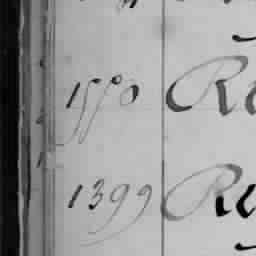 1550 Re
1399 Re